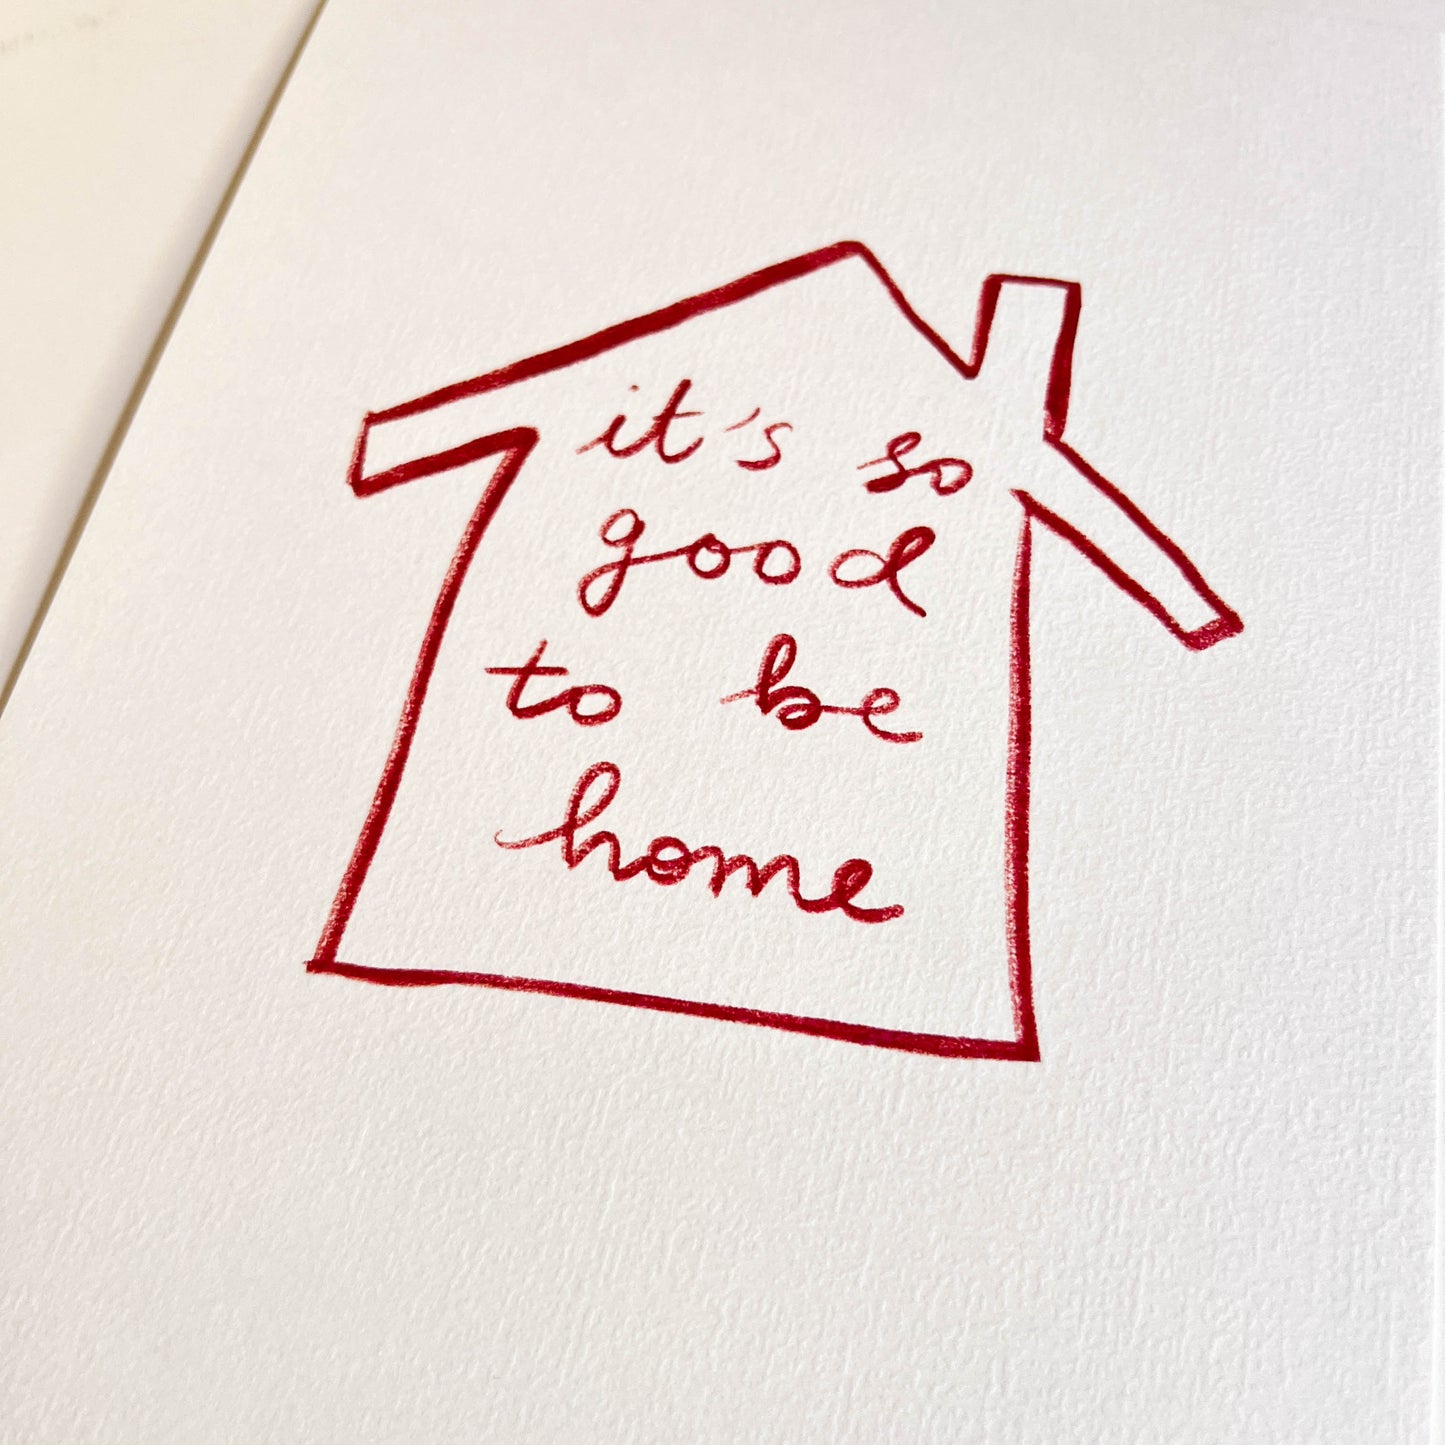 it's so
good
to be
home